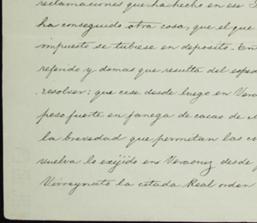 reclamaciones que ha hecho en ese
ha conseguido otra cosa, que el que
impuesto se tubiese en deposito. En
referido y demas que resulta del esped
resolver: que cese desde luego en Vera
peso fuerte en fanega de cacao de
la brevedad que permitan las
suelva lo exijido en Veracruz desde
Virreynato la citada Real orden